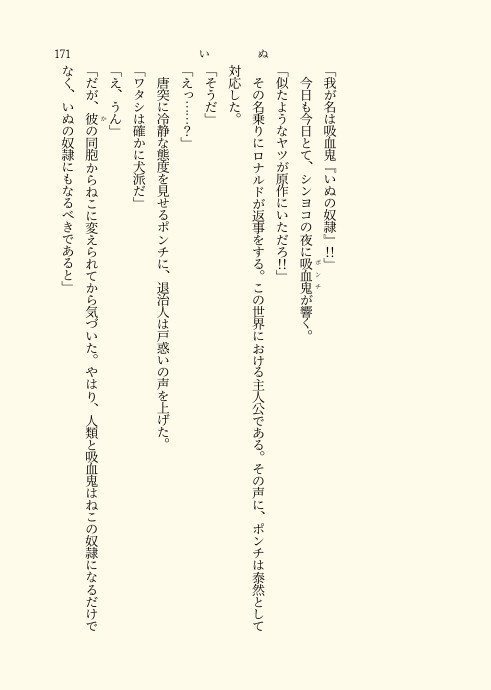 171
いぬ
「我が名は吸血鬼『いぬの奴隷』!!」
今日も今日とて、シンヨコの夜に吸血鬼が響く。
ポンチ
「似たようなヤツが原作にいただろ!!」
その名乗りにロナルドが返事をする。この世界における主人公である。その声に、ポンチは泰然として
対応した。
「そうだ」
「えっ……?」
唐突に冷静な態度を見せるポンチに、退治人は戸惑いの声を上げた。
「ワタシは確かに犬派だ」
「え、うん」
「だが、彼の同胞からねこに変えられてから気づいた。やはり、人類と吸血鬼はねこの奴隷になるだけで
か
なく、いぬの奴隷にもなるべきであると」